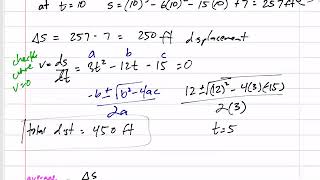 at t=10 s=(10)³-6(10)²-15(10)+7=257 feet
ΔS = 257-7 = 250 ft displacement
checks where v=0
a b c
v = ds/dt = 3t²-12t-15=0
-b±√b²-4ac / 2a
12±√(12)²-4(3)(-15) / 2(3)
total dist = 450 ft
t=5
average ΔS